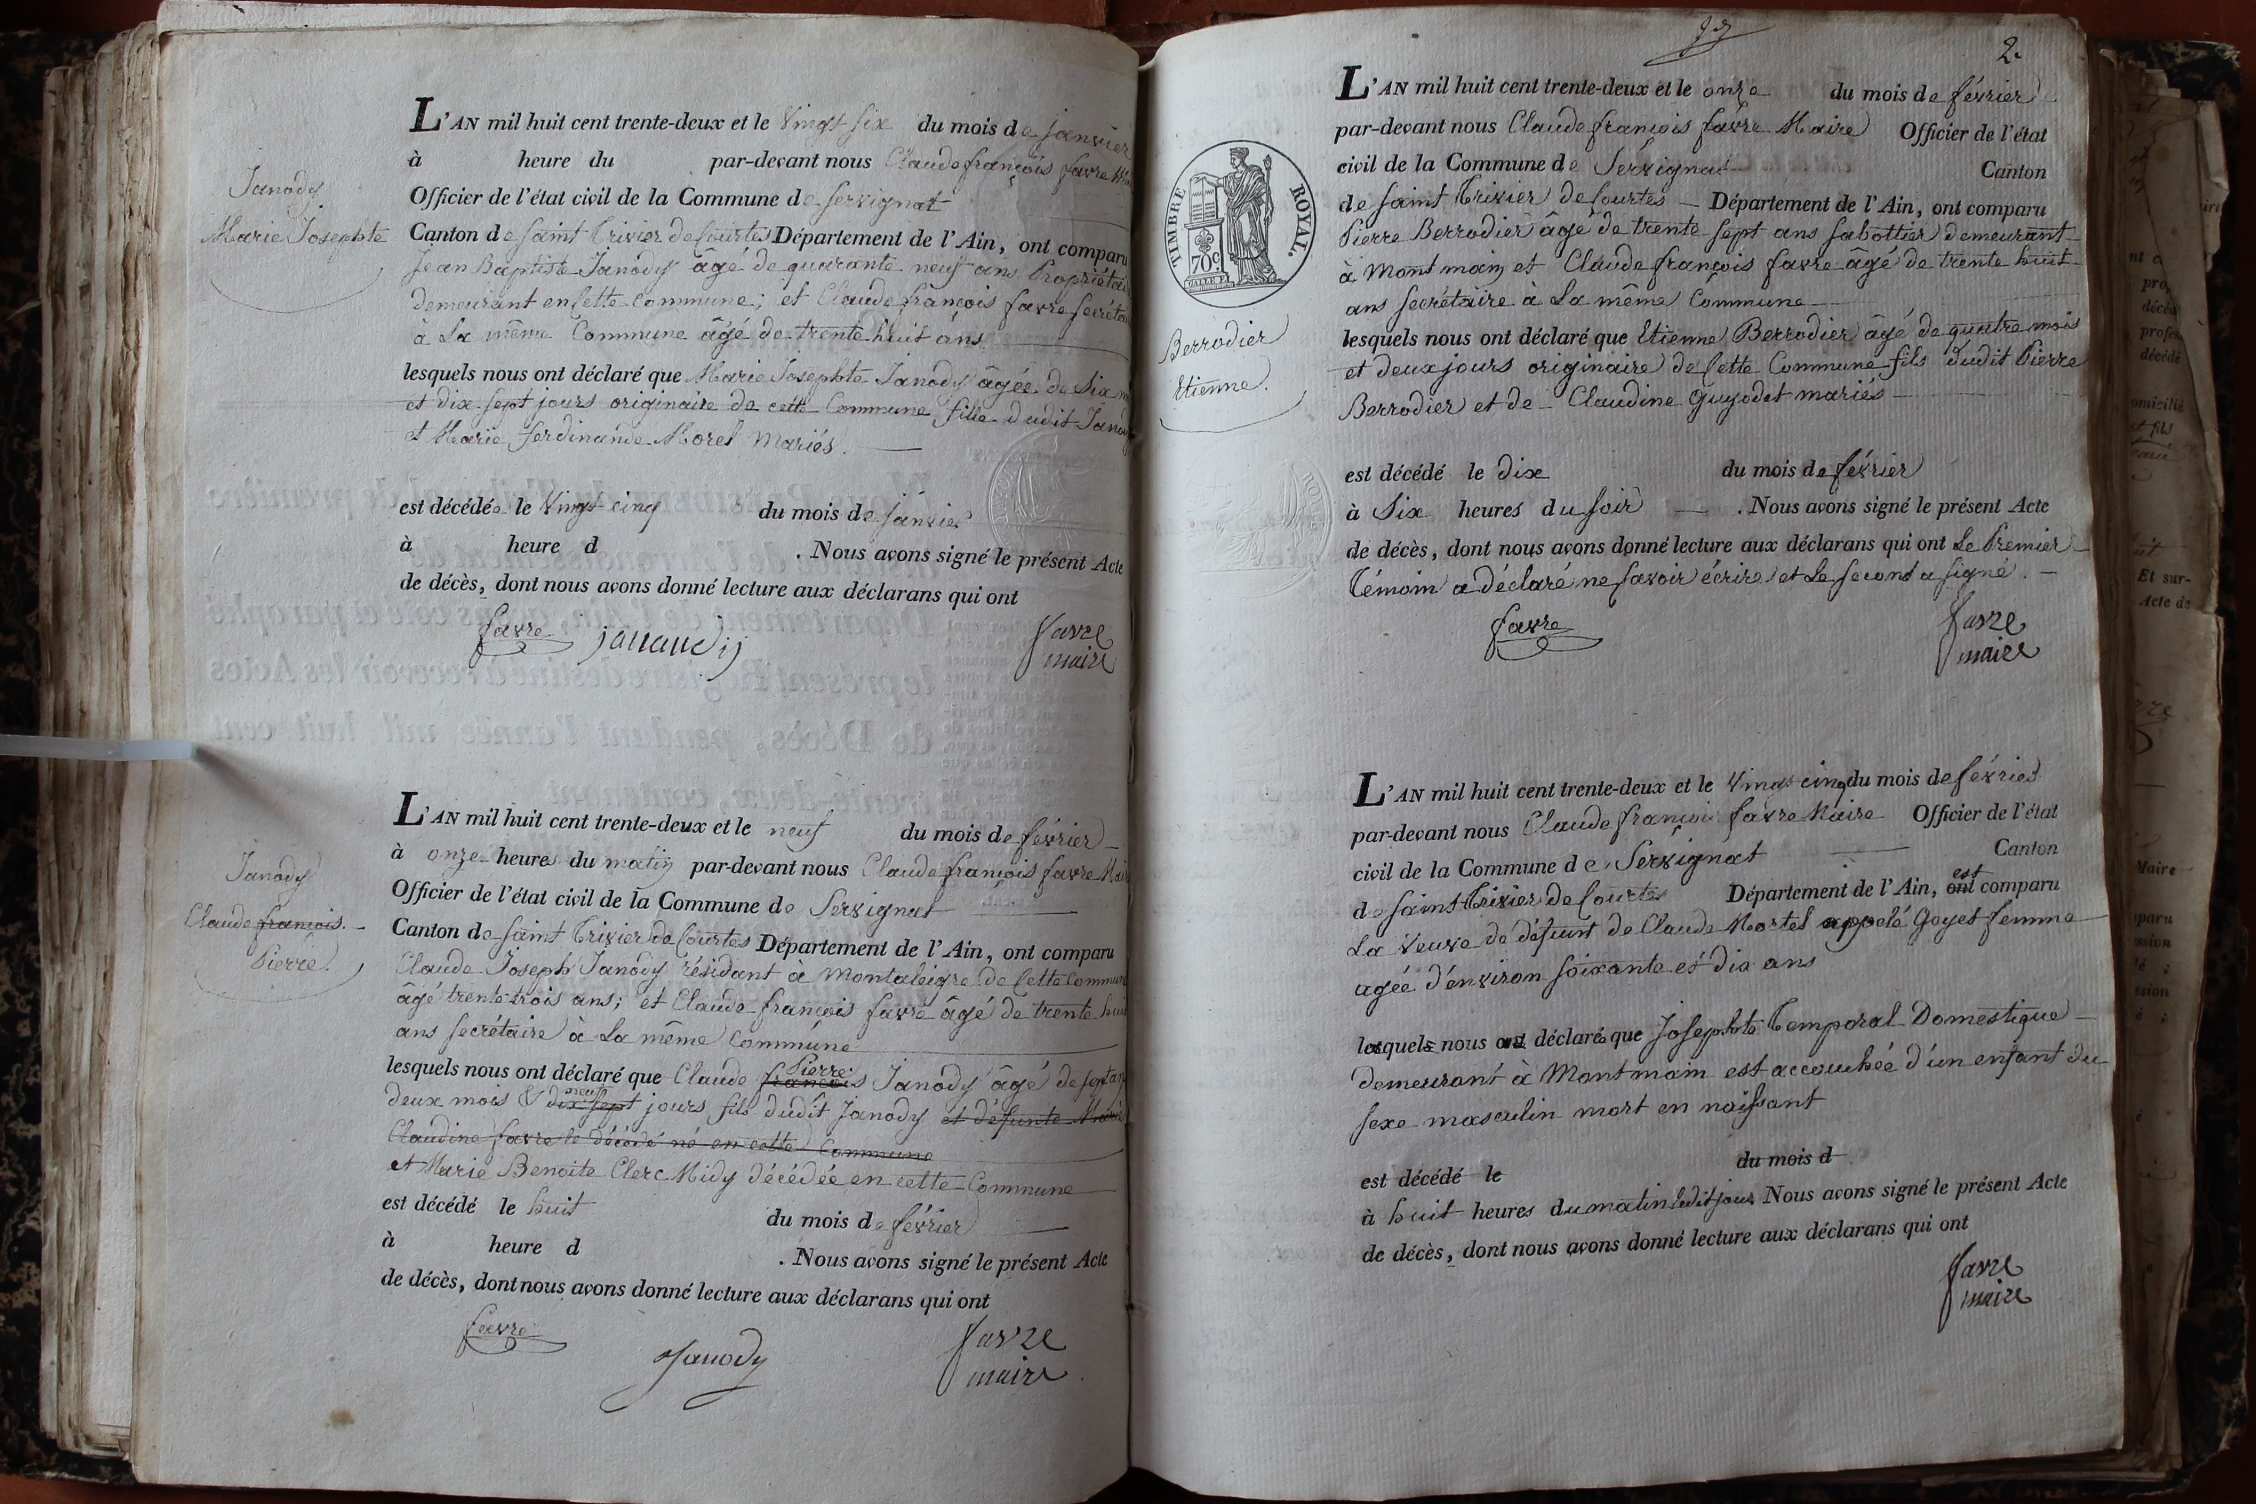 Janody
Marie Josephte
L'AN mil huit cent trente-deux et le Vingt six du mois de janvier
à heure du par-devant nous Claude françois favre
Officier de l'état civil de la Commune de servignat
Canton de saint Trivier de Courtes Département de l'Ain, ont comparu
Jean Baptiste Janody âgé de quarante neuf ans Propriétai
demeurant en Cette Commune; et Claude françois favre secréta
à La même Commune âgé de trente huit ans
lesquels nous ont déclaré que Marie Josephte Janody âgée de Six m
et dix-sept jours originaire de cette Commune fille dudit Janody
et Marie ferdinande Morel Mariés.
est décédée le Vingt cinq du mois de janvier
à heure d . Nous avons signé le présent Acte
de décès, dont nous avons donné lecture aux déclarans qui ont
favre janaudij favre
maire
Janody
Claude françois.
Pierre.
L'AN mil huit cent trente-deux et le neuf du mois de février
à onze heures du matin par-devant nous Claude françois favre Mai
Officier de l'état civil de la Commune de Servignat
Canton de saint Trivier de Courtes Département de l'Ain, ont comparu
Claude Joseph Janody résidant à Montaleigre de Cette Commune
âgé trente trois ans; et Claude françois favre âgé de trente huit
ans secrétaire à La même Commune
Pierre
lesquels nous ont déclaré que Claude françois Janody âgé de sept an
neuf
deux mois & dix sept jours fils dudit Janody et défunte Marie
Claudine favre le décédé né en cette Commune
et Marie Benoite Clerc Midy décédée en cette Commune
est décédé le huit du mois de février
à heure d . Nous avons signé le présent Acte
de décès, dont nous avons donné lecture aux déclarans qui ont
favre Janody favre
maire
2.
TIMBRE ROYAL.
70c
Berrodier
Etienne.
L'AN mil huit cent trente-deux et le onze du mois de février
par-devant nous Claude françois favre Maire Officier de l'état
civil de la Commune de Servignat Canton
de saint Trivier de Courtes Département de l'Ain, ont comparu
Pierre Berrodier âgé de trente sept ans sabottier demeurant
à Montmain et Claude françois favre âgé de trente huit
ans secrétaire à La même Commune
lesquels nous ont déclaré que Etienne Berrodier âgé de quatre mois
et deux jours originaire de Cette Commune fils dudit Pierre
Berrodier et de Claudine Guyodet mariés
est décédé le dix du mois de février
à Six heures du soir . Nous avons signé le présent Acte
de décès, dont nous avons donné lecture aux déclarans qui ont Le Premier
Témoin a déclaré ne savoir écrire et Le second a signé.
favre favre
maire
L'AN mil huit cent trente-deux et le Vingt cinq du mois de février
par-devant nous Claude françois favre Maire Officier de l'état
civil de la Commune de Servignat Canton
est
de saint Trivier de Courtes Département de l'Ain, ont comparu
La Veuve de défunt de Claude Mortel appelé Goyet femme
agée d'environ soixante et dix ans
laquelle nous a déclaré que Josephte Temporal Domestique
demeurant à Montmain est accouchée d'un enfant du
sexe masculin mort en naissant
est décédé le du mois d
à huit heures du matin ledit jour Nous avons signé le présent Acte
de décès, dont nous avons donné lecture aux déclarans qui ont
favre
maire